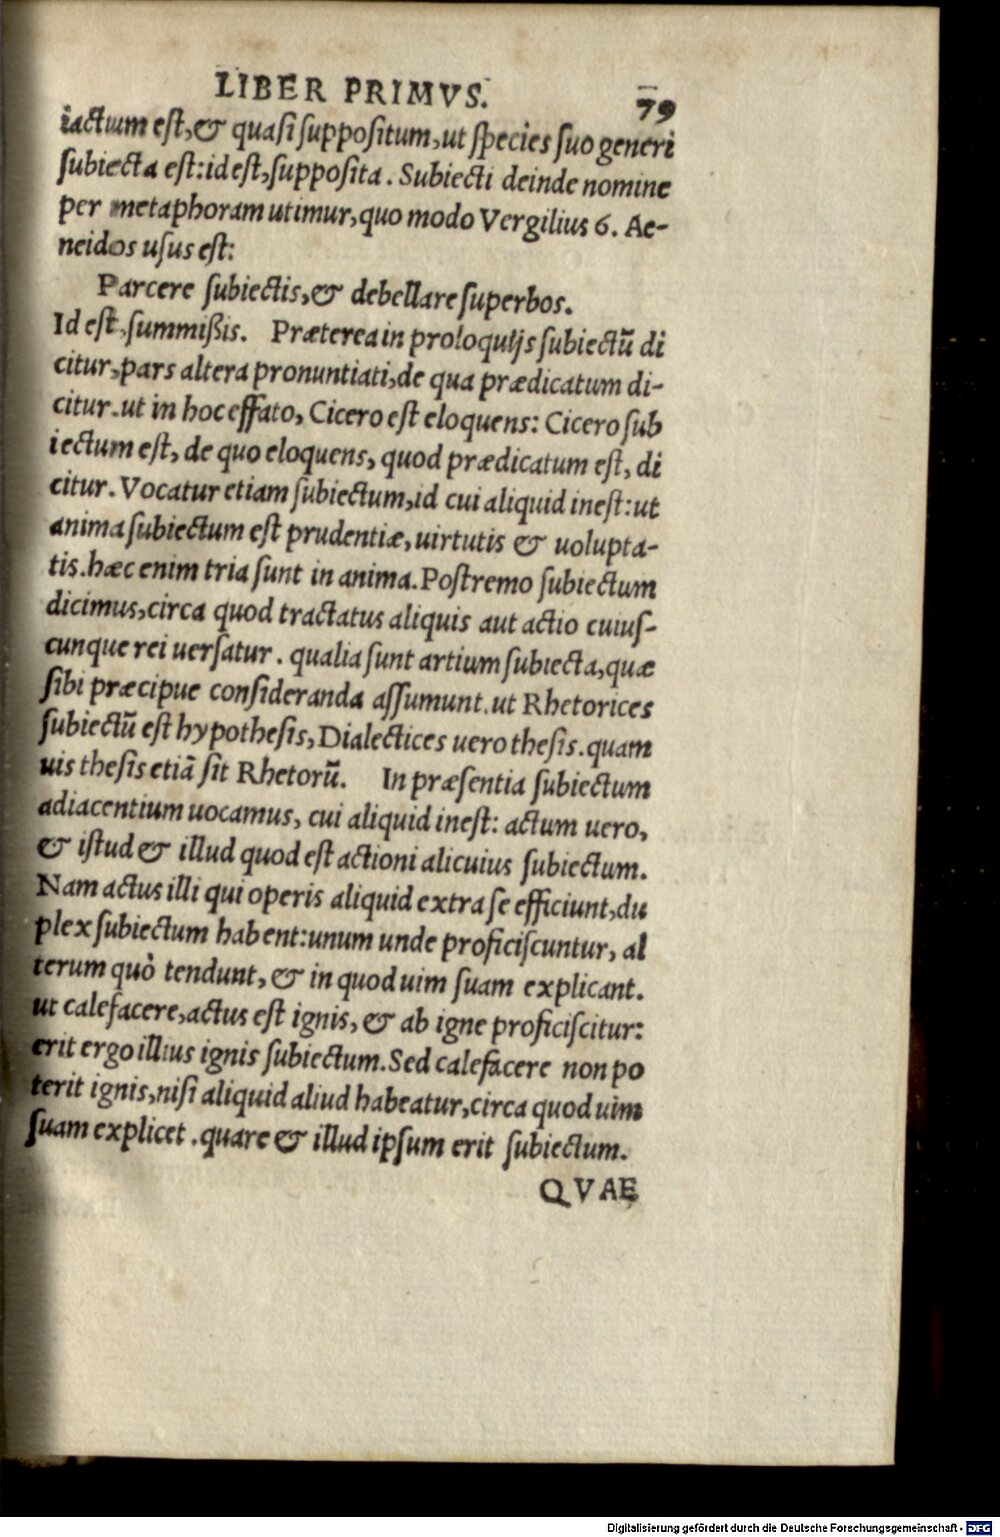 LIBER PRIMVS. 79
iactum est, & quasi suppositum, ut species suo generi
subiecta est: id est, supposita. Subiecti deinde nomine
per metaphoram utimur, quo modo Vergilius 6. Ae-
neidos usus est:
Parcere subiectis, & debellare superbos.
Id est, summißis. Præterea in proloquijs subiectũ di
citur, pars altera pronuntiati, de qua prædicatum di-
citur. ut in hoc effato, Cicero est eloquens: Cicero sub
iectum est, de quo eloquens, quod prædicatum est, di
citur. Vocatur etiam subiectum, id cui aliquid inest: ut
anima subiectum est prudentiæ, uirtutis & uolupta-
tis. hæc enim tria sunt in anima. Postremo subiectum
dicimus, circa quod tractatus aliquis aut actio cuius-
cunque rei uersatur. qualia sunt artium subiecta, quæ
sibi præcipue consideranda assumunt. ut Rhetorices
subiectũ est hypothesis, Dialectices uero thesis. quam
uis thesis etiã sit Rhetorũ. In præsentia subiectum
adiacentium uocamus, cui aliquid inest: actum uero,
& istud & illud quod est actioni alicuius subiectum.
Nam actus illi qui operis aliquid extra se efficiunt, du
plex subiectum habent: unum unde proficiscuntur, al
terum quò tendunt, & in quod uim suam explicant.
ut calefacere, actus est ignis, & ab igne proficiscitur:
erit ergo illius ignis subiectum. Sed calefacere non po
terit ignis, nisi aliquid aliud habeatur, circa quod uim
suam explicet. quare & illud ipsum erit subiectum.
QVAE
Digitalisierung gefördert durch die Deutsche Forschungsgemeinschaft - DFG